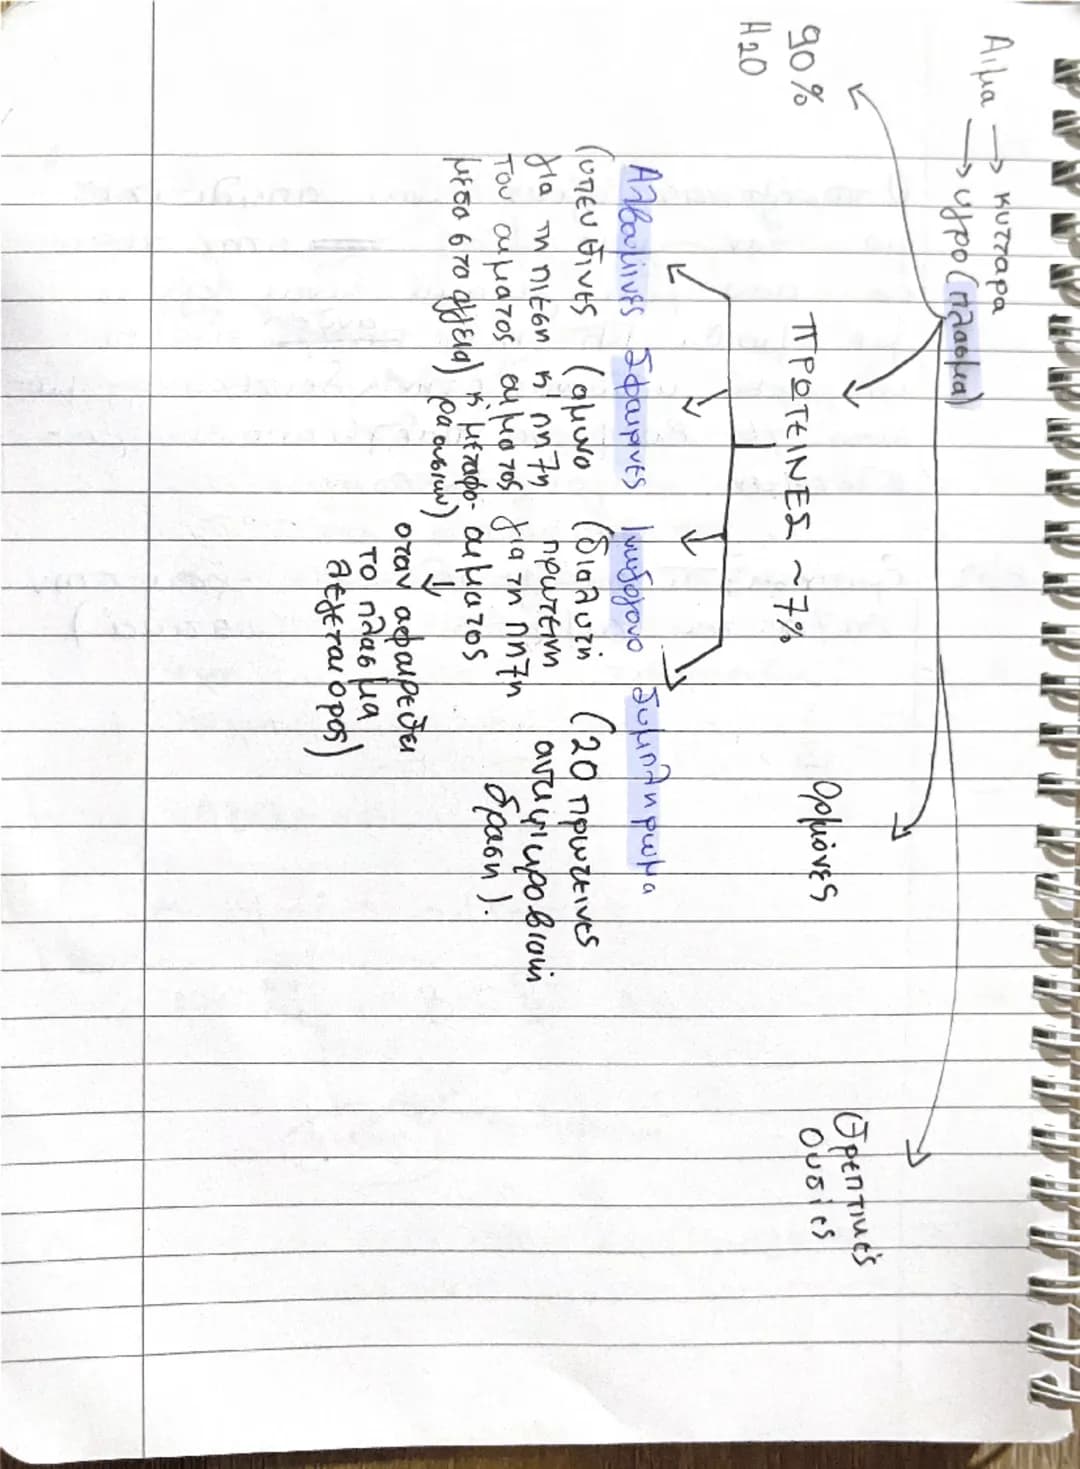 Αιμα → κυτταρα
→ υγρο (πλασμα)
90%
H2O
ΠΡΩΤΕΙΝΕΣ ~7%
Ορμόνες
Θρεπτικές
ουσίες
Αλβουμίνες
(υπευθινες
για τη πιεση
του αιματος
μεσα στο αγγεια)
Σφαιρινες
(αμινο
κ' πηξη
αιματος
κ' μεταφο-
ρα ουσιων)
Ινωδογονο
(διαλυτη
πρωτεινη
για τη πηξη
αιματος
↓
οταν αφαιρεθει
το πλασμα
λεγεται ορος)
Συμπληρωμα
(20 πρωτεινες
αντιμικροβιακη
δραση).